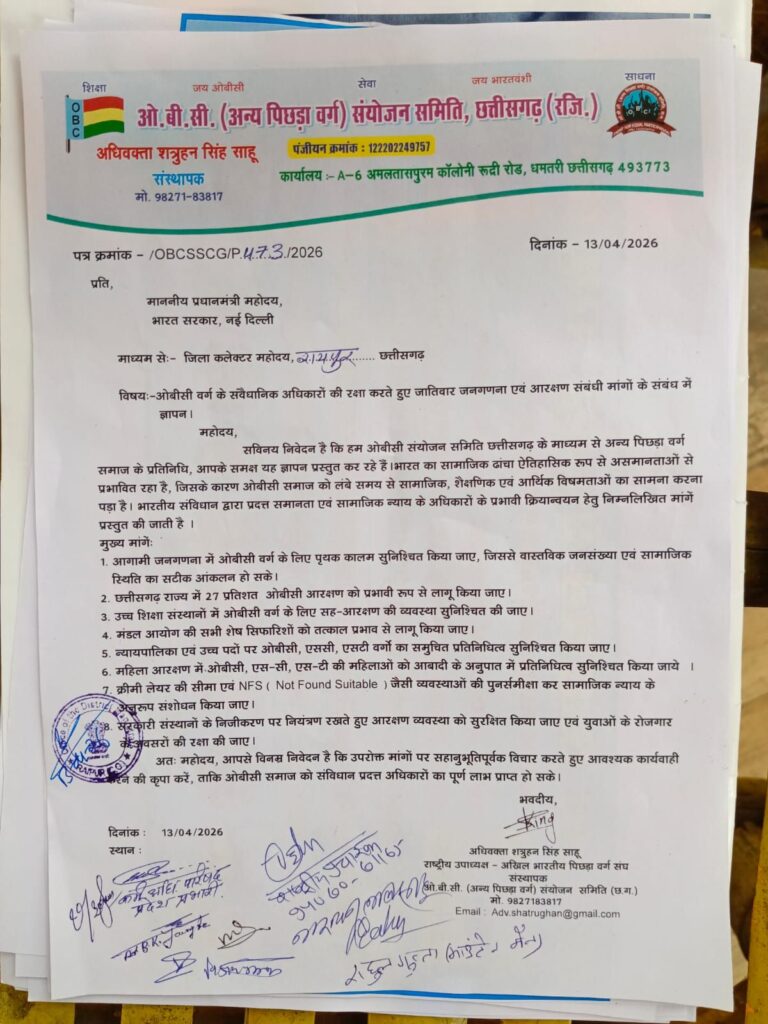 शिक्षा जय ओबीसी सेवा जय भारतवंशी साधना
OBC
ओ.बी.सी. (अन्य पिछड़ा वर्ग) संयोजन समिति, छत्तीसगढ़ (रजि.)
अधिवक्ता शत्रुहन सिंह साहू
पंजीयन क्रमांक : 122202249757
संस्थापक
कार्यालय :- A-6 अमलतासपुरम कॉलोनी रूद्री रोड, धमतरी छत्तीसगढ़ 493773
मो. 98271-83817
पत्र क्रमांक - /OBCSSCG/P.473./2026
दिनांक - 13/04/2026
प्रति,
माननीय प्रधानमंत्री महोदय,
भारत सरकार, नई दिल्ली
माध्यम से:- जिला कलेक्टर महोदय, रायपुर....... छत्तीसगढ़
विषय:-ओबीसी वर्ग के संवैधानिक अधिकारों की रक्षा करते हुए जातिवार जनगणना एवं आरक्षण संबंधी मांगों के संबंध में
ज्ञापन।
महोदय,
सविनय निवेदन है कि हम ओबीसी संयोजन समिति छत्तीसगढ़ के माध्यम से अन्य पिछड़ा वर्ग
समाज के प्रतिनिधि, आपके समक्ष यह ज्ञापन प्रस्तुत कर रहे हैं।भारत का सामाजिक ढांचा ऐतिहासिक रूप से असमानताओं से
प्रभावित रहा है, जिसके कारण ओबीसी समाज को लंबे समय से सामाजिक, शैक्षणिक एवं आर्थिक विषमताओं का सामना करना
पड़ा है। भारतीय संविधान द्वारा प्रदत्त समानता एवं सामाजिक न्याय के अधिकारों के प्रभावी क्रियान्वयन हेतु निम्नलिखित मांगें
प्रस्तुत की जाती है ।
मुख्य मांगें:
1. आगामी जनगणना में ओबीसी वर्ग के लिए पृथक कालम सुनिश्चित किया जाए, जिससे वास्तविक जनसंख्या एवं सामाजिक
स्थिति का सटीक आंकलन हो सके।
2. छत्तीसगढ़ राज्य में 27 प्रतिशत ओबीसी आरक्षण को प्रभावी रूप से लागू किया जाए।
3. उच्च शिक्षा संस्थानों में ओबीसी वर्ग के लिए सह-आरक्षण की व्यवस्था सुनिश्चित की जाए।
4. मंडल आयोग की सभी शेष सिफारिशों को तत्काल प्रभाव से लागू किया जाए।
5. न्यायपालिका एवं उच्च पदों पर ओबीसी, एससी, एसटी वर्गों का समुचित प्रतिनिधित्व सुनिश्चित किया जाए।
6. महिला आरक्षण में ओबीसी, एस-सी, एस-टी की महिलाओं को आबादी के अनुपात में प्रतिनिधित्व सुनिश्चित किया जाये ।
7. क्रीमी लेयर की सीमा एवं NFS ( Not Found Suitable ) जैसी व्यवस्थाओं की पुनर्समीक्षा कर सामाजिक न्याय के
अनुरूप संशोधन किया जाए।
8. सरकारी संस्थानों के निजीकरण पर नियंत्रण रखते हुए आरक्षण व्यवस्था को सुरक्षित किया जाए एवं युवाओं के रोजगार
के अवसरों की रक्षा की जाए।
अतः महोदय, आपसे विनम्र निवेदन है कि उपरोक्त मांगों पर सहानुभूतिपूर्वक विचार करते हुए आवश्यक कार्यवाही
करने की कृपा करें, ताकि ओबीसी समाज को संविधान प्रदत्त अधिकारों का पूर्ण लाभ प्राप्त हो सके।
भवदीय,
दिनांक : 13/04/2026
स्थान :
अधिवक्ता शत्रुहन सिंह साहू
राष्ट्रीय उपाध्यक्ष - अखिल भारतीय पिछड़ा वर्ग संघ
संस्थापक
ओ.बी.सी. (अन्य पिछड़ा वर्ग) संयोजन समिति (छ.ग.)
मो. 9827183817
Email : Adv.shatrughan@gmail.com
प्रदेश प्रभारी